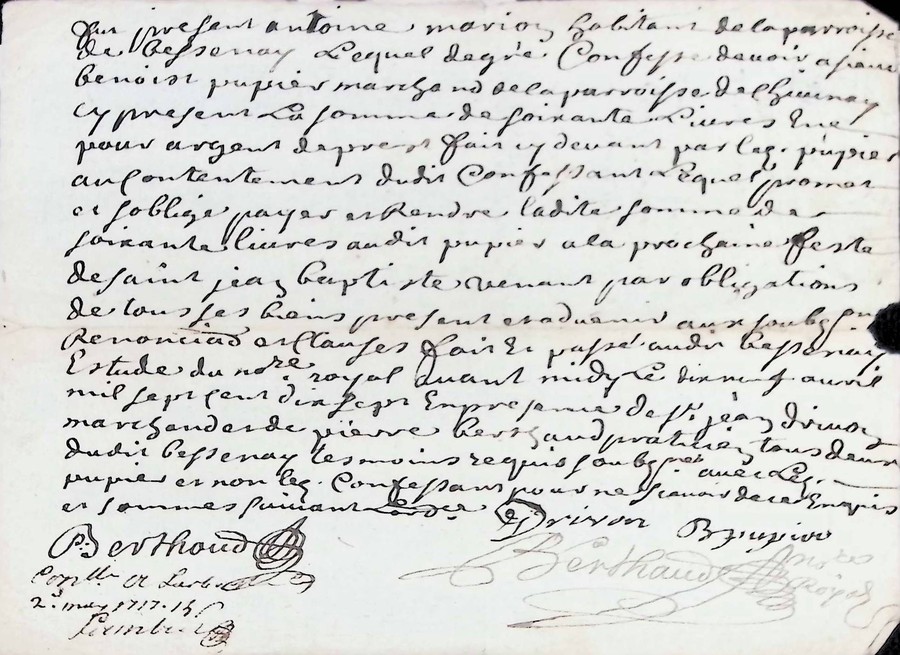 fut present antoine marion habitant de la parroisse
de bessenay Lequel de gré Confesse devoir a sieur
benoist pupier marchand de la parroisse de Chevinay
cy present La somme de soixante Livres Et ce
pour argent de prest fait cy devant par leg. pupier
au Contentement dudit Confessant Lequel promet
et soblige payer et Rendre ladite somme de
soixante livres audit pupier a la prochaine feste
de saint jean baptiste venant par obligations
de tous ses biens present et advenir aux soub
Renonciaõ et Clauses fait Et passé audit bessenay
Estude du nore royal avant midy Le dixneuf avril
mil sept cent dix sept En presence de sr. jean drivon
marchand et de pierre berthaud praticien tous deux
dudit bessenay tesmoins requis soubsnes avec Leg.
pupier et non leg. Confessant pour ne scavoir de ce Enquis
et sommes suivant Lorde
P. Berthaud Drivon B pupier
Conlle et
2e may 1717.
Berthaud nore Royal